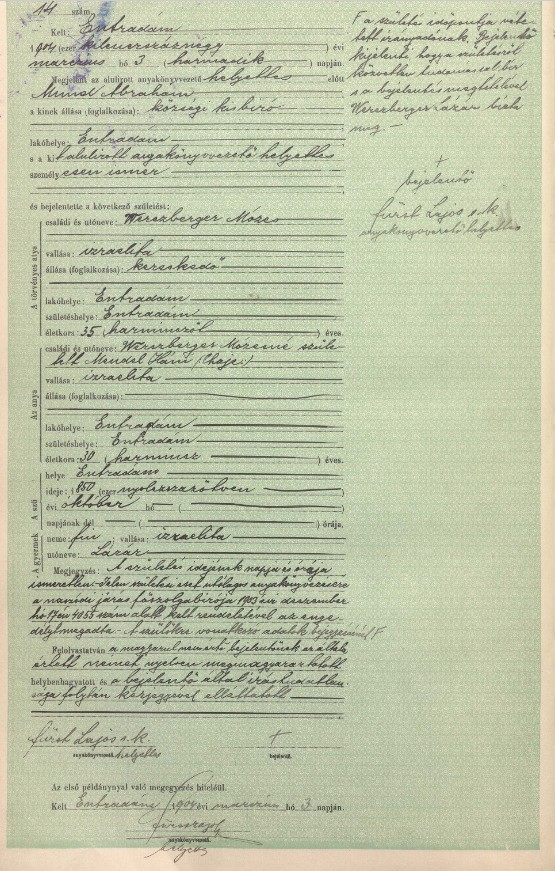 14 szám.
Kelt: Entradám
1904 (ezer kilencszáznégy ) évi
március hó 3 (harmadik ) napján.
Megjelent az alulirott anyakönyvvezető helyettes előtt
Ábrahám
a kinek állása (foglalkozása): községi kisbiró
lakóhelye: Entradám
s a kit alulirott anyakönyvvezető helyettes
személyesen ismer
és bejelentette a következő születést:
A törvényes atya
családi és utóneve: Werczberger Mózes
vallása: izraelita
állása (foglalkozása): kereskedő
lakóhelye: Entradám
születéshelye: Entradám
életkora: 35 (harmincöt ) éves.
Az anya
családi és utóneve: Werczberger Mózesné szüle-
tett Mendel Háni (Chaje)
vallása: izraelita
állása (foglalkozása):
lakóhelye: Entradám
születéshelye: Entradám
életkora: 30 (harminc ) éves.
A szü
helye: Entradam
ideje: 1850 (ezer nyolcszazötven )
évi október hó ( )
napjának dél ( ) órája.
A gyermek
neme: fiu vallása: izraelita
utóneve: Lázár
Megjegyzés: A születés idejének napja és órája
ismeretlen. Jelen születési eset utólagos anyakönyvezésére
a naszódi járás főszolgabirója 1903 évi december
hó 17 én 4055 szám alatt kelt rendeletével az enge-
délyt megadta. A szülőkre vonatkozó adatok bejegyzésénél F
Felolvastatván a magyarul nem értő bejelentőnek az általa
értett német nyelven megmagyaráztatott
helybenhagyatott és a bejelentő által irástudatlan-
sága folytán kézjegyével elláttatott
Fürst Lajos s.k. +
anyakönyvvezető helyettes bejelentő.
Az első példánynyal való megegyezés hiteléül.
Kelt Entradám 1904 évi március hó 3 napján.
anyakönyvvezető
helyettes
F a születés időpontja véte-
tett irányadónak. Bejelentő
kijelenti hogy a születésről
közvetlen tudomással bir
s a bejelentés megtételével
Werczberger Lázár bizta
meg —
+
bejelentő
Fürst Lajos s.k.
anyakönyvvezető helyettes